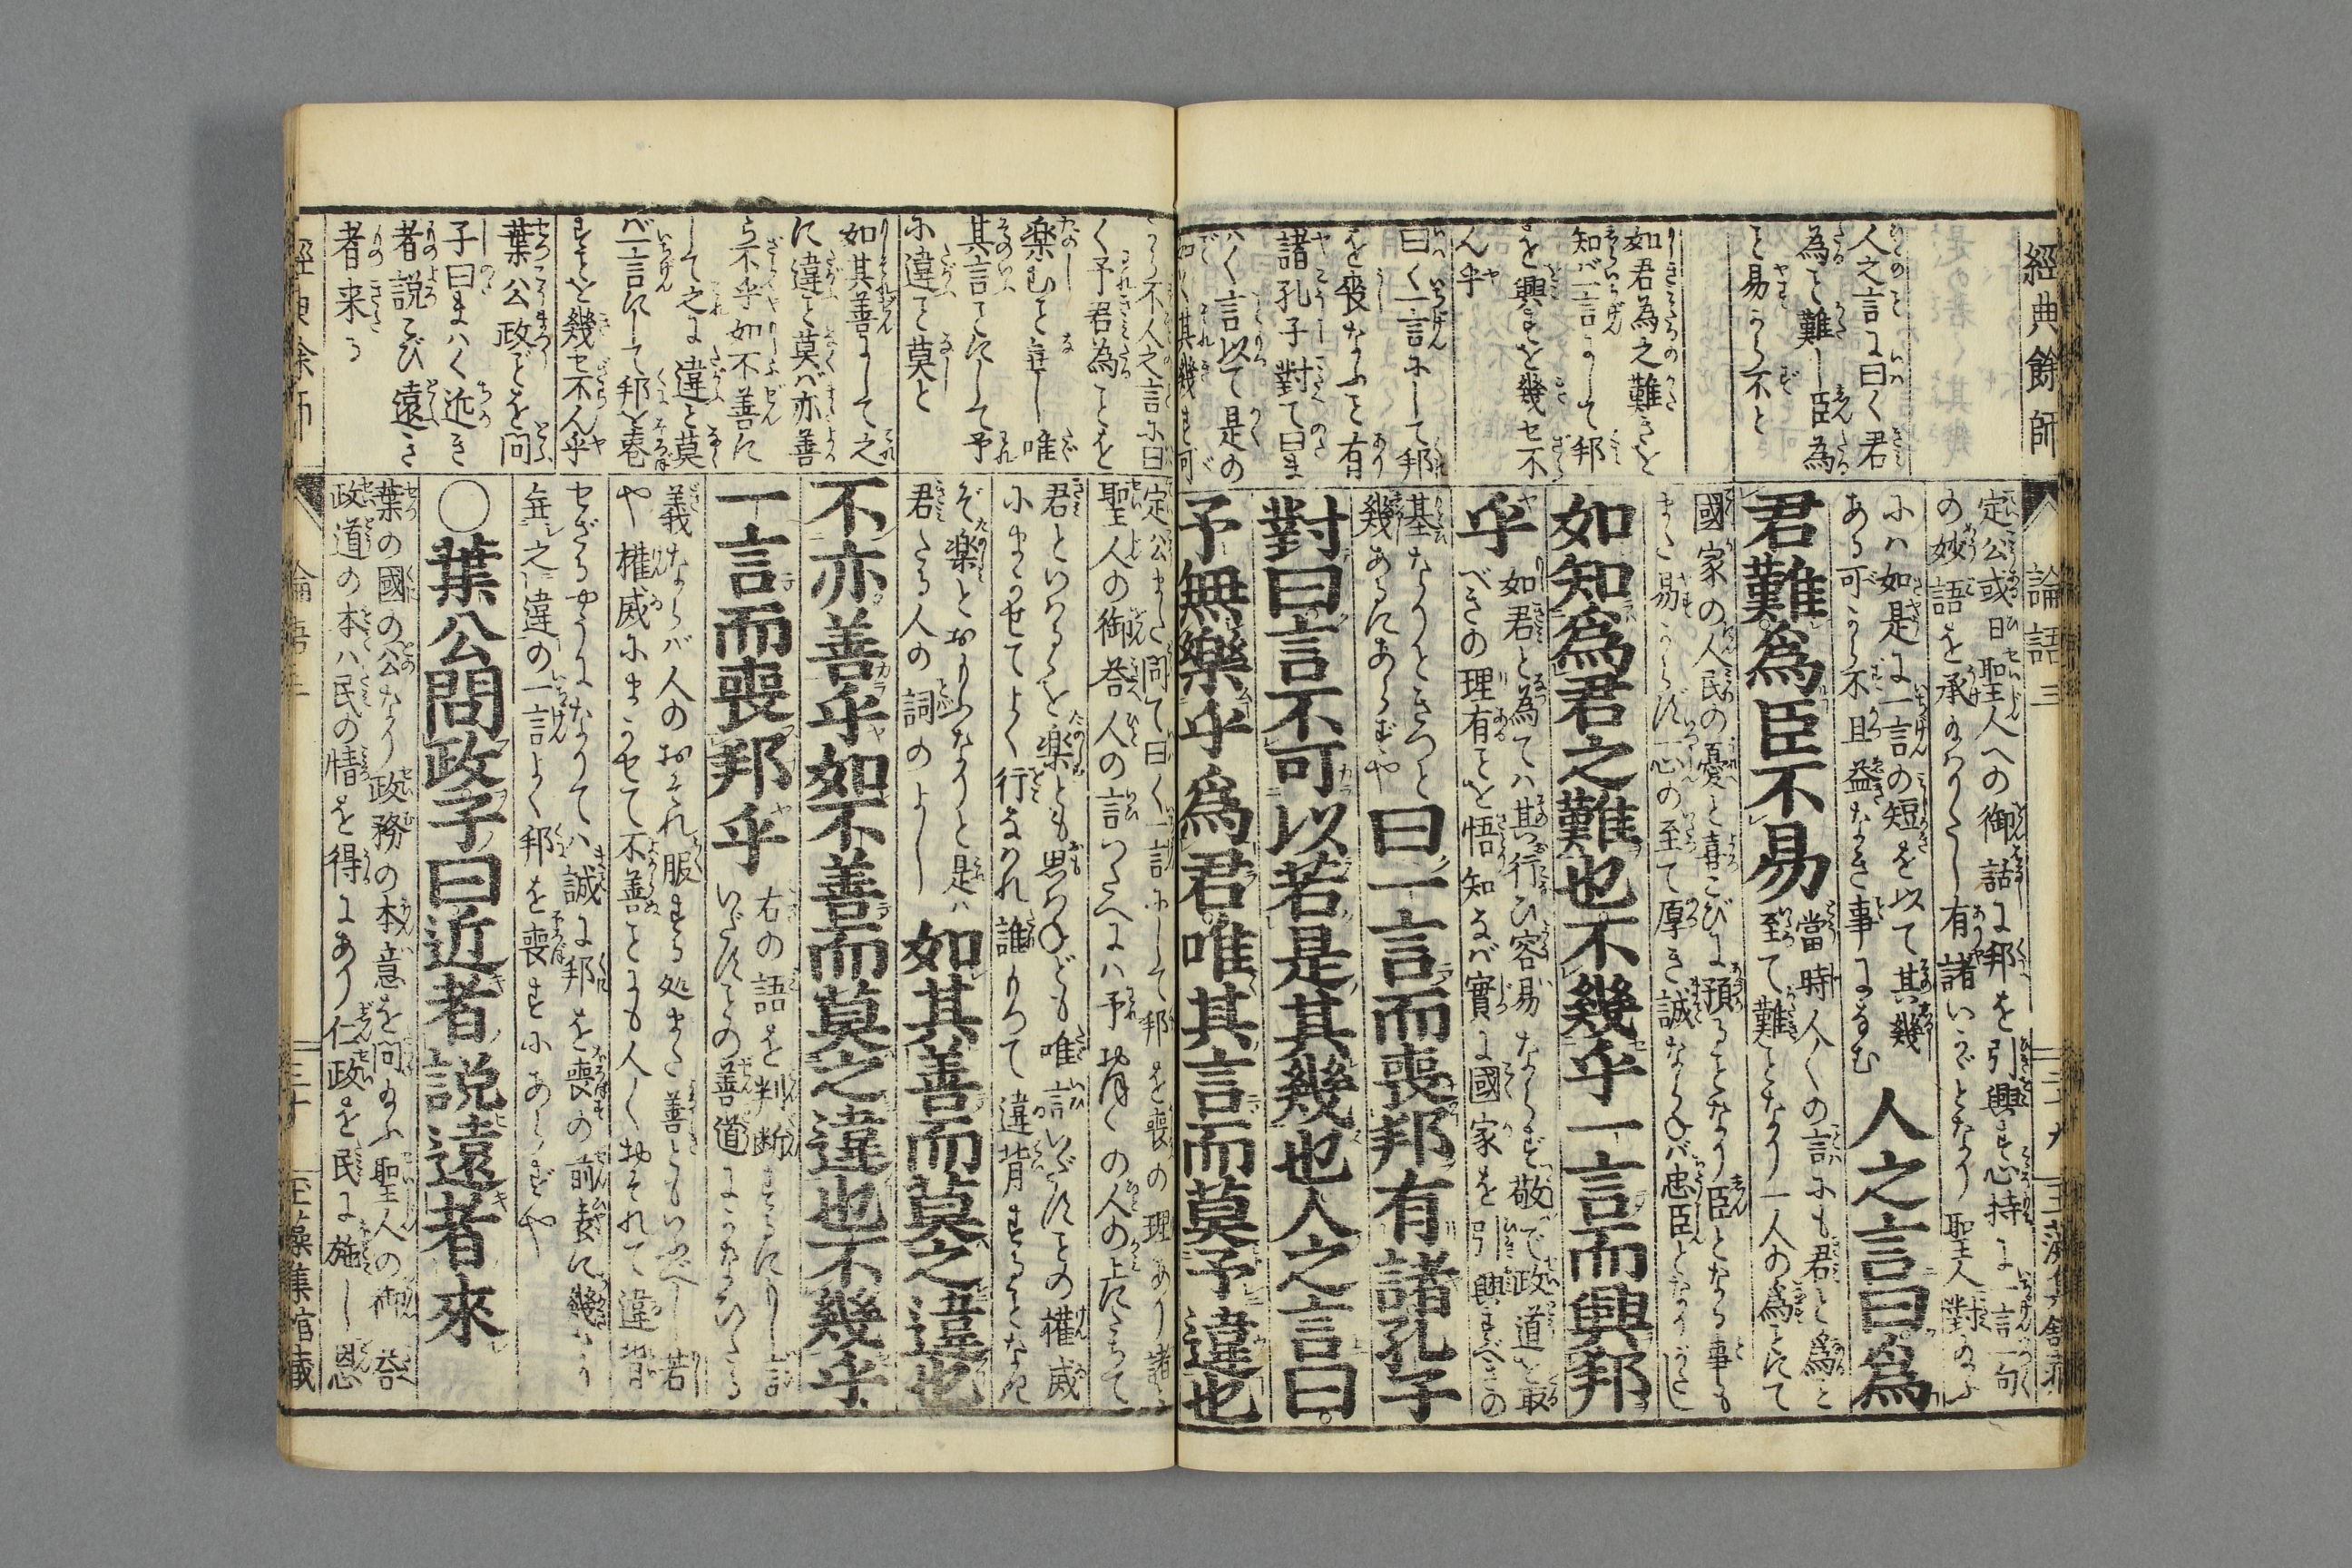 經典餘師
論語三
人之言に曰く君
為と難し臣為
と易から不と
如君為之難きを
知バ一言にして邦
を興すを幾せ不
ん乎
曰く一言にして邦
を喪なふと有
諸孔子對て曰ま
ハく言以て是の
如く其幾す可
定公或日聖人への御話に邦を引興す心持に一言一句
の妙語を承
有諸いかゞとなり聖人對のふ
小ハ如是に一言の短を以て其幾
ある可から不且益なき事になむ
人之言曰爲
君難爲臣不易
當時人〱の言にも君と為と
至て難ことなり一人の為とにて
國家の人民の憂と喜こびに預ることなり臣となる事も
また易からず一心の至て厚き誠ならねバ忠臣となりがた
如知爲君之難也不幾乎一言而興邦
乎
如君と為てハ其行ひ容易ならず敬で政道を取
べきの理有ことを悟知なバ實に國家を引興すべきの
基なりときつと
幾あるにあらずや
曰一言而喪邦有諸孔子
對曰言不可以若是其幾也人之言曰
予無樂乎爲君唯其言而莫予違也
から不人之言に曰
く予君為ことを
楽むと無し唯
其言ことにして予
に違こと莫と
如其善にして之
に違こと莫バ亦善
ら不乎如不善に
して之に違と莫
バ一言にして邦を喪
すを幾せ不ん乎
葉公政ごとを問
子曰まハく近き
者説こび遠き
者来る
定公また問て曰く一言にして邦を喪の理あり諸
聖人の御答人の言いへにハ予
の人の上にたちて
君といハるゝを楽とも思ハねども唯言いだすことの權威
にまかせてよく行なハれ誰ありて違背することなき
ぞ楽とおもふなりと是ハ
君たる人の詞のよし
如其善而莫之違也
不亦善乎如不善而莫之違也不幾乎
一言而喪邦乎
右の語を判断するにもし言
いだすことの善道に
義ならバ人のおそれ服する処また善ともいふべし若
や權威にまかせて不善ことにも人〱おそれて違背
せざるやうになりてハ誠に邦を喪の前表に幾かり
無之違の一言よく邦を喪すにあらずや
〇葉公問政子曰近者説遠者來
葉の國の公なり政務の本意を問ふ聖人の御答
政道の本ハ民の情を得にあり仁政を民に施し恩